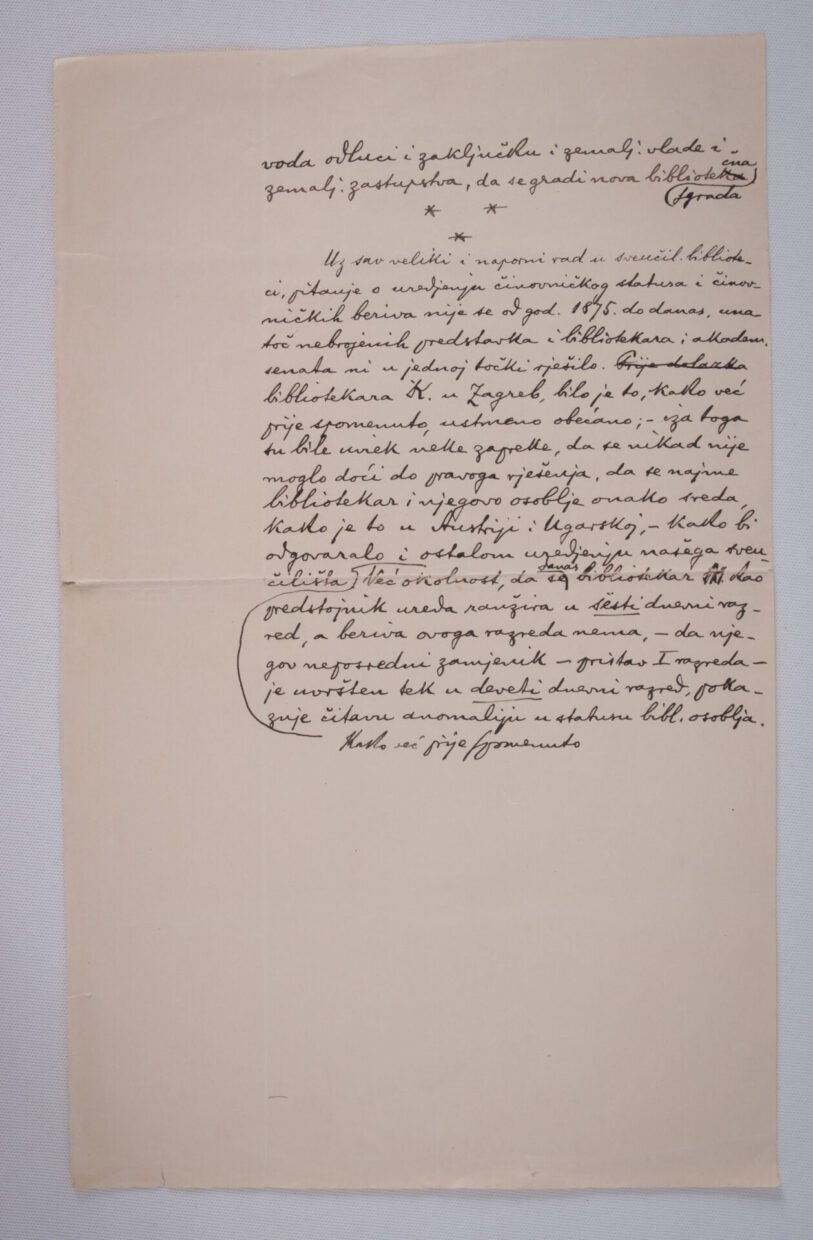 voda odluci i zaključku i zemalj. vlade i
zemalj. zastupstva, da se gradi nova bibliotečna
zgrada
* *
*
Uz sav veliki i naporni rad u sveučil. bibliote-
ci, pitanje o uredjenju činovničkog statusa i činov-
ničkih beriva nije se od god. 1875. do danas, una
toč nebrojenih predstavka i bibliotekara i akadem.
senata ni u jednoj točki rješilo. Prije dolazka
bibliotekara K. u Zagreb, bilo je to, kako već
prije spomenuto, ustmeno obećano; – iza toga
su bile uviek neke zapreke, da se nikad nije
moglo doći do pravoga rješenja, da se najme
bibliotekar i njegovo osoblje onako sreda,
kako je to u Austriji i Ugarskoj, – kako bi
odgovaralo i ostalom uredjenju našega sveu-
čilišta. Već okolnost, da se danas bibliotekar kao
predstojnik ureda ranžira u šesti dnevni raz-
red, a beriva ovoga razreda nema, – da nje-
gov neposredni zamjenik – pristav I razreda –
je uvršten tek u deveti dnevni razred, poka-
zuje čitavu anomaliju u statusu bibl. osoblja.
Kako već prije spomenuto